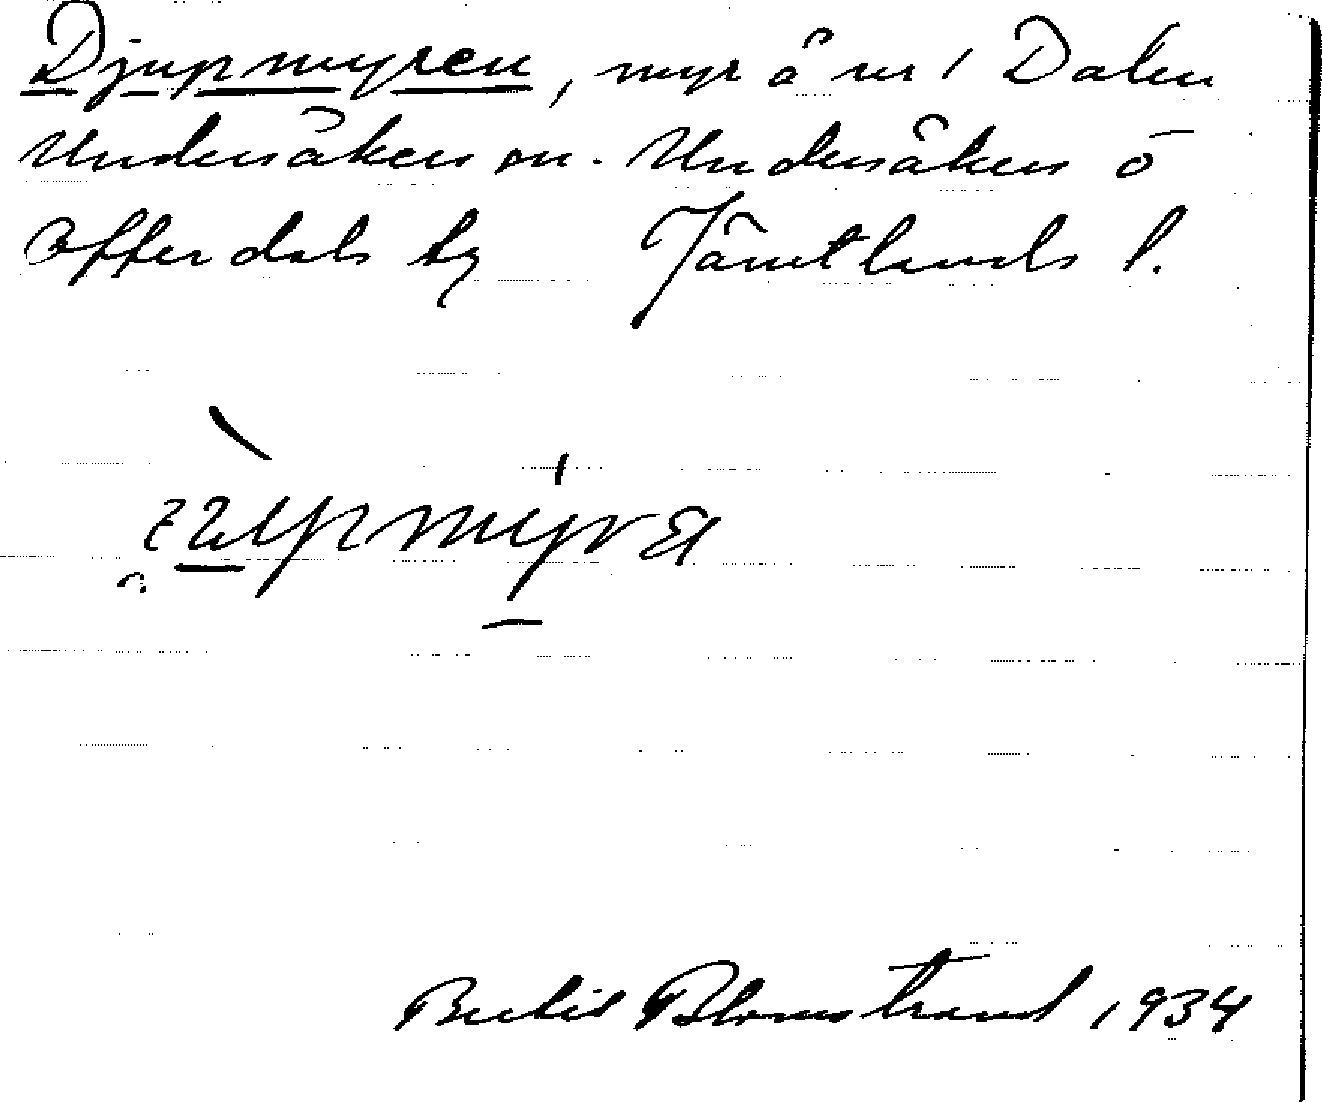 Djupmyren, myr å nr 1 Dalen
Undersåkers sn. Undersåkers ö
Offerdals by Jämtlands l.
Bertil Blomstrand 1934